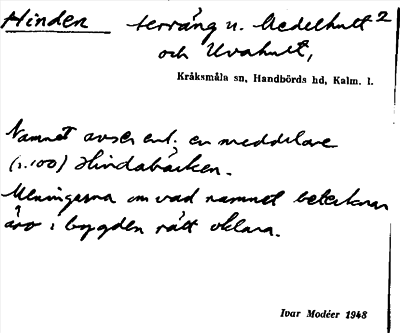 Hinden terräng n. Uedelhult 2
och Uvahult,
Kråksmåla sn, Handbörds hd, Kalm. l.
Namnet avser enl. en meddelare
(s. 100) Hindabäcken.
Meningarna om vad namnet betecknar
äro i bygden rätt oklara.
Ivar Modéer 1948